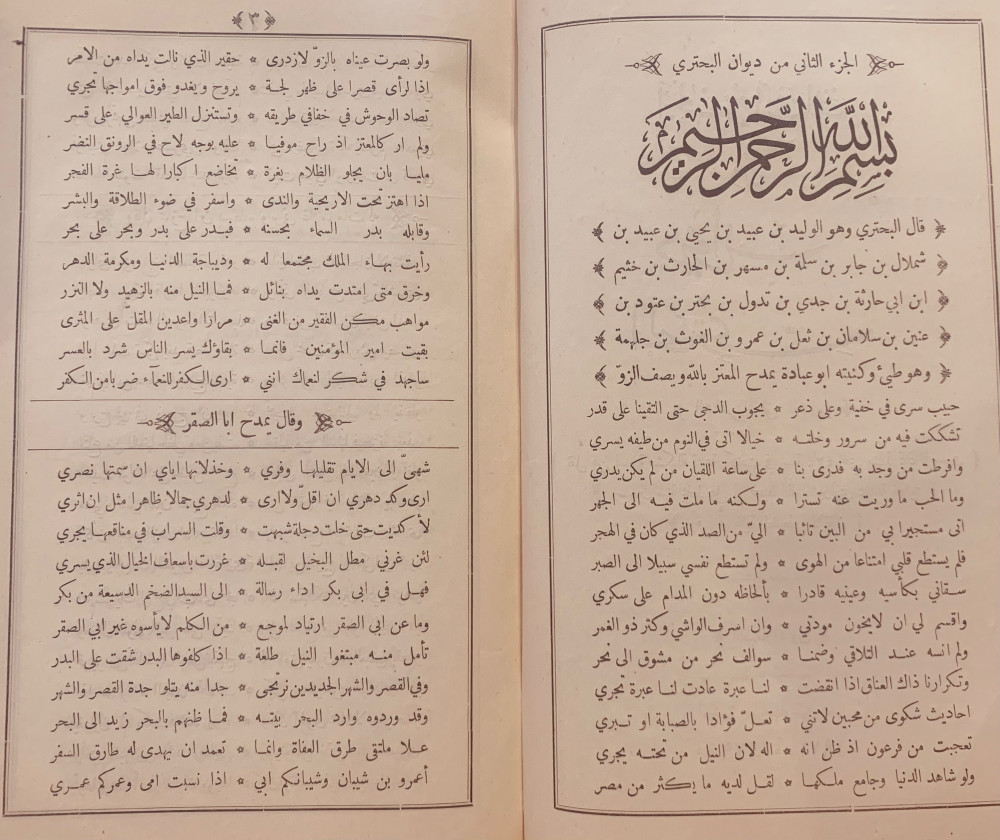 الجزء الثاني من ديوان البحتري
بسم الله الرحمن الرحيم
﴿ قال البحتري وهو الوليد بن عبيد بن يحيى بن عبيد بن ﴾
﴿ شملال بن جابر بن سلمة بن مسهر بن الحارث بن خثيم ﴾
﴿ ابن ابي حارثة بن جدي بن تدول بن بحتر بن عتود بن ﴾
﴿ عنين بن سلامان بن ثعل بن عمرو بن الغوث بن جلهمة ﴾
﴿ وهو طيئ وكنيته ابو عبادة يمدح المعتز بالله ويصف الزوّ ﴾
حبيب سرى في خفية وعلى ذعر * يجوب الدجى حتى التقينا على قدر
تشككت فيه من سرور وخلتـه * خيالا اتى في النوم من طيفه يسري
وافرطت من وجد به فدرى بنا * على ساعة اللقيان من لم يكن يدري
وما الحب ما وريت عنه تسترا * ولكنه ما ملت فيه الى الجهر
اتى مستجيرا بي من البين تائبا * اليّ من الصد الذي كان في الهجر
فلم يستطع قلبي امتناعا من الهوى * ولم تستطع نفسي سبيلا الى الصبر
سقاني بكأسيه وعينيه قادرا * بألحاظه دون المدام على سكري
واقسم لي ان لايخون مودتي * وان اسرف الواشي وكثر ذو الغمر
ولم انسه عند التلاقي وضمنا * سوالف نحر من مشوق الى نحر
وتكرارنا ذاك العناق اذا انقضت * لنا عبرة عادت لنا عبرة تجري
احاديث شكوى من محبين لاتني * تعلّ فؤادا بالصبابة او تبري
تعجبت من فرعون اذ ظن انه * اله لان النيل من تحته يجري
ولو شاهد الدنيا وجامع ملكها * لقل لديه ما يكثر من مصر
﴿ ٣ ﴾
ولو بصرت عيناه بالزوّ لازدرى * حقير الذي نالت يداه من الامر
اذا لرأى قصرا على ظهر لجة * يروح ويغدو فوق امواجها تجري
تصاد الوحوش في خفافي طريقه * وتستنزل الطير العوالي على قسر
ولم ار كالمعتز اذ راح موفيا * عليه بوجه لاح في الرونق النضر
مليا بان يجلو الظلام بغرة * تخاضع اكبارا لها غرة الفجر
اذا اهتز تحت الاريحية والندى * واسفر في ضوء الطلاقة والبشر
وقابله بدر السماء بحسنه * فبدر على بدر وبحر على بحر
رأيت بهاء الملك مجتمعا له * وديباجة الدنيا ومكرمة الدهر
وخرق متى امتدت يداه بنائل * فما النيل منه بالزهيد ولا النزر
مواهب مكن الفقير من الغنى * مرازا واعدين المقلّ على المثرى
بقيت امير المؤمنين فانما * بقاؤك يسر الناس شرد بالعسر
ساجهد في شكر لنعماك انني * ارى الكفر للنعماء ضربا من الكفر
وقال يمدح ابا الصقر
شهيّ الى الايام تقليلها وفري * وخذلانها اياي ان سمتها نصري
ارى وكد دهري ان اقلّ ولا ارى * لدهري جمالا ظاهرا مثل ان اثري
لأكديت حتى خلت دجلة شبهت * وقلت السراب في مناقعها يجري
لئن غرني مطل البخيل لقبله * غررت باسعاف الخيال الذي يسري
فهل في ابى بكر اداء رسالة * الى السيد الضخم الدسيعة من بكر
وما عن ابى الصقر ارتياد لموجع * من الكلم لايأسوه غير ابي الصقر
تأمل منه مبتغوا النيل طلعة * اذا كلفوها البدر شقت على البدر
وفي القصر والشهر الجديدين نرتجى * جدا منه يتلو جدة القصر والشهر
وقد وردوه وارد البحر بيته * فما ظنهم بالبحر زيد الى البحر
علا ملتقى طرق العفاة وانما * تعمد ان يهدى له طارق السفر
أعمرو بن شيبان وشيبانكم ابي * اذا نسبت امى وعمركم عمري